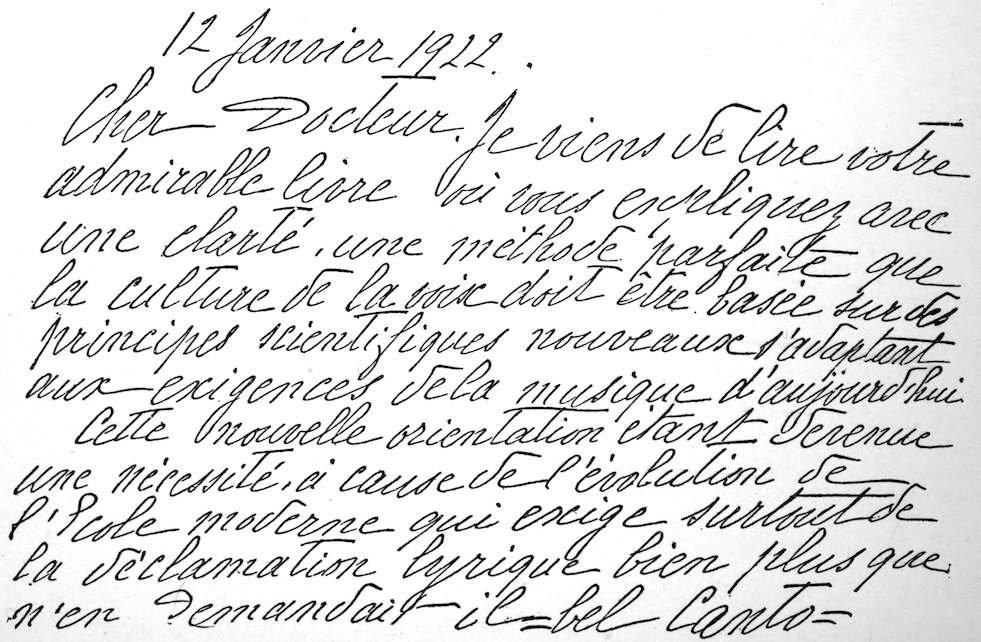 12 Janvier 1922.
Cher Docteur. Je viens de lire votre
admirable livre où vous expliquez avec
une clarté, une méthode parfaite que
la culture de la voix doit être basée sur des
principes scientifiques nouveaux s'adaptant
aux exigences de la musique d'aujourd'hui.
Cette nouvelle orientation étant devenue
une nécessité, à cause de l'évolution de
l'École moderne qui exige surtout de
la déclamation lyrique bien plus que
n'en demandait il=bel Canto=